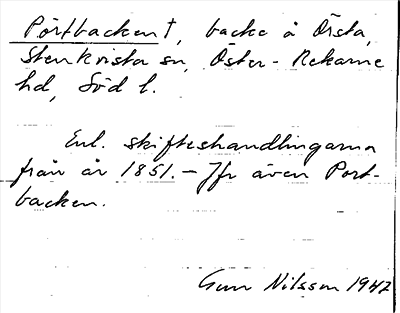 Pörtbacken†, backe å Örsta,
Stenkvista sn, Öster-Rekarne
hd, Söd l.
Enl. skifteshandlingarna
från år 1851. – Jfr även Port-
backen.
Gun Nilsson 1947